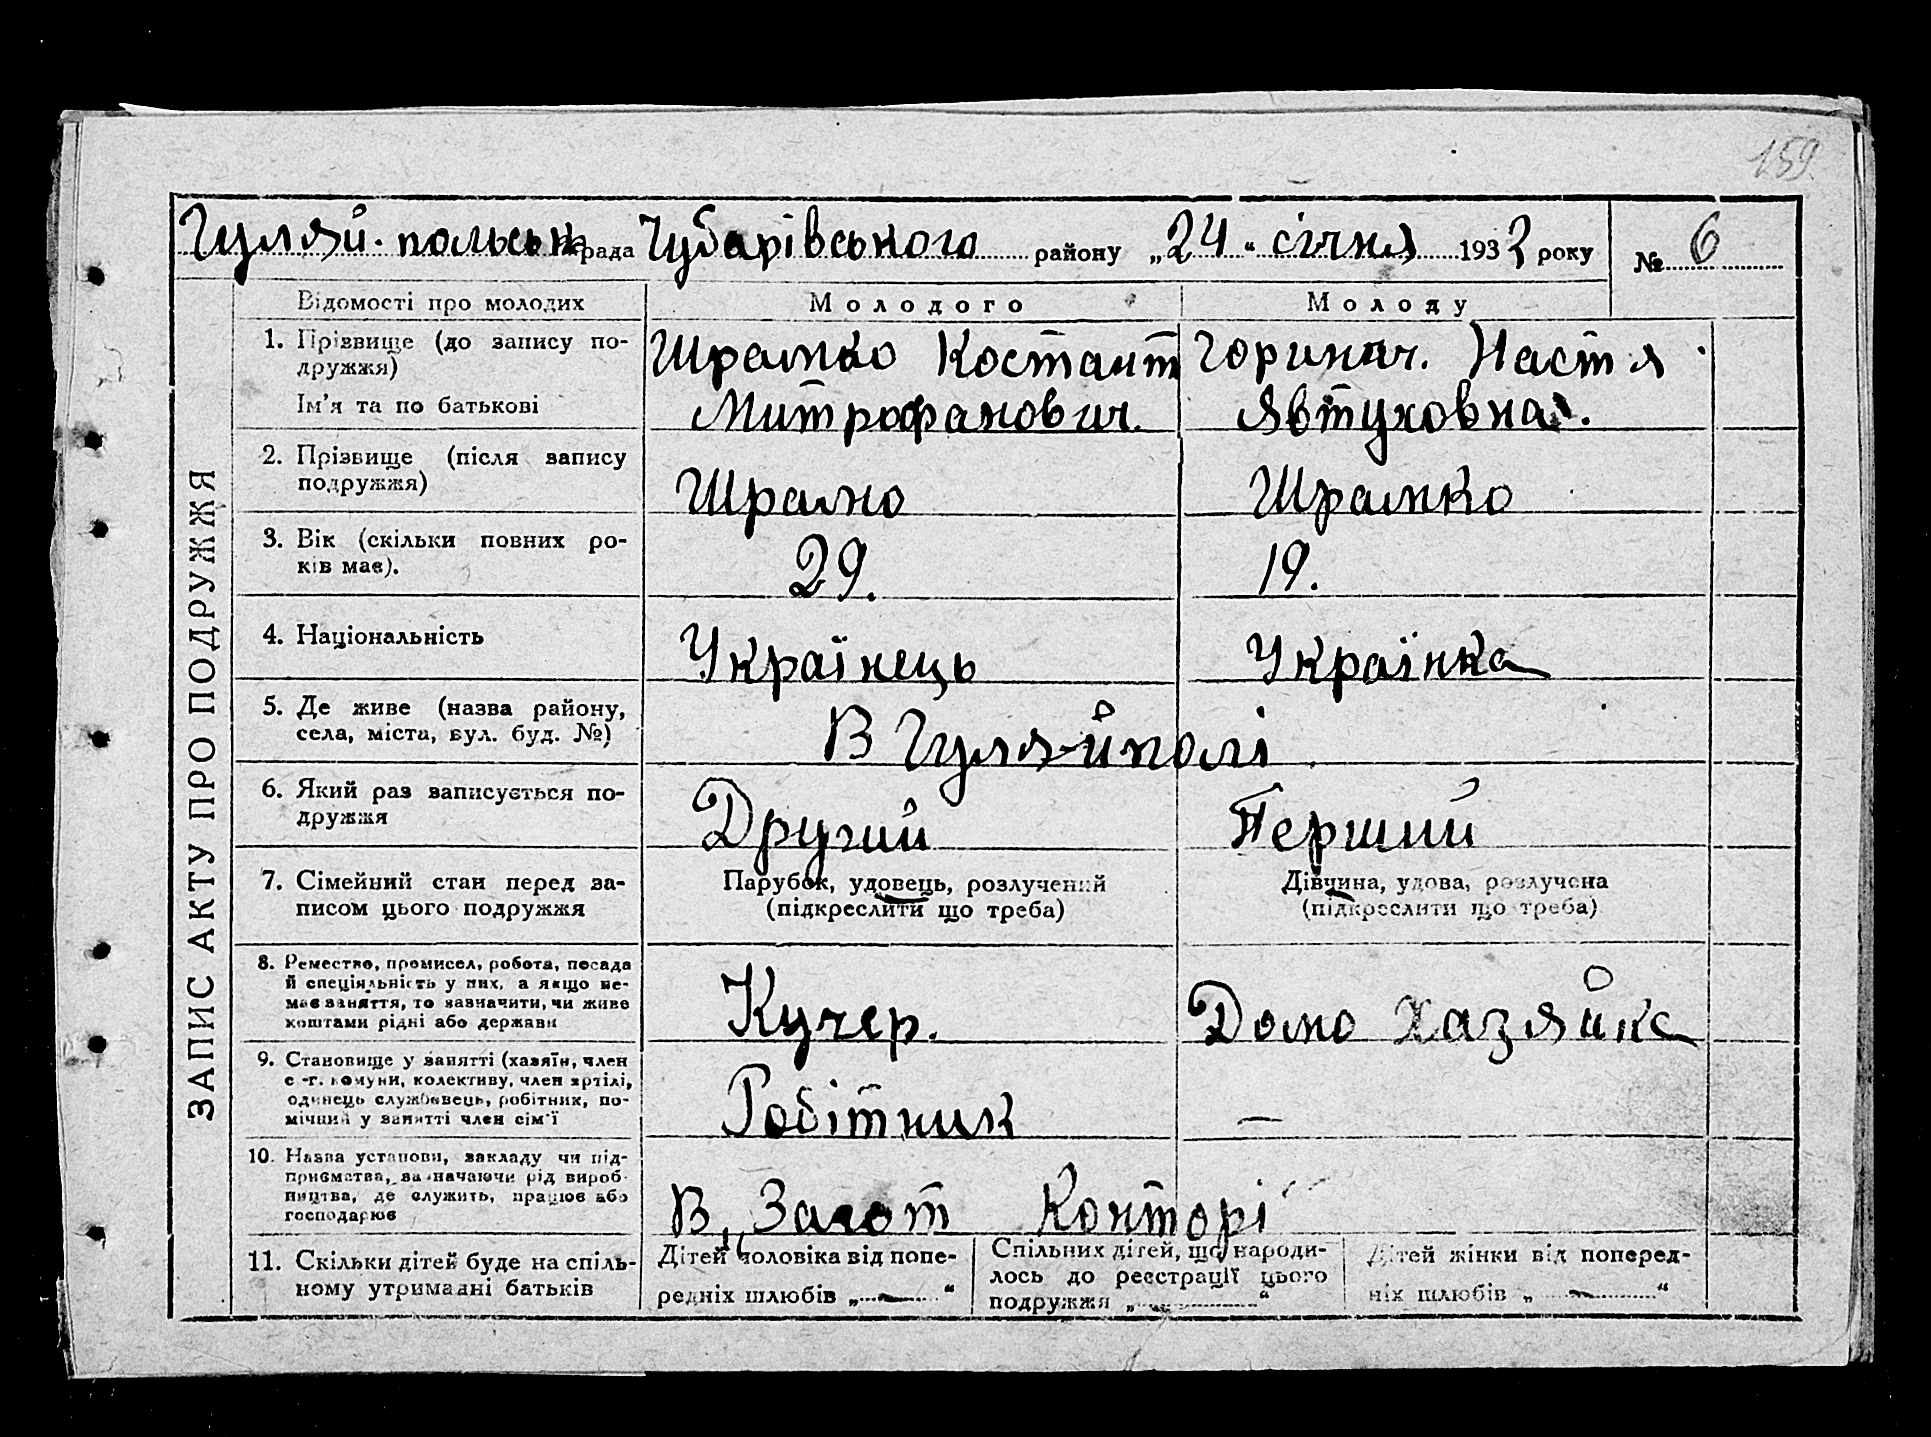 159
Гуляй-польськ рада Чубарівського району „24" січня 1932 року № 6
Відомості про молодих Молодого Молоду
ЗАПИС АКТУ ПРО ПОДРУЖЖЯ
1. Прізвище (до запису по-
дружжя)
Ім'я та по батькові
Шрамко Костант
Митрофанович.
Горинич. Настя
Явтуховна.
2. Прізвище (після запису
подружжя)
Шрамко Шрамко
3. Вік (скільки повних ро-
ків має).
29. 19.
4. Національність
Українець Українка
5. Де живе (назва району,
села, міста, вул. буд. №)
В Гуляйполі
6. Який раз записується по-
дружжя
Другий Перший
7. Сімейний стан перед за-
писом цього подружжя
Парубок, удовець, розлучений
(підкреслити що треба)
Дівчина, удова, розлучена
(підкреслити що треба)
8. Ремество, промисел, робота, посада
й спеціяльність у них, а якщо не-
має заняття, то зазначити, чи живе
коштами рідні або держави
Кучер. Домо Хазяйка
9. Становище у занятті (хазяїн, член
с.-г. комуни, колективу, член артілі,
одинець службовець, робітник, по-
мічний у занятті член сім'ї
Робітник —
10. Назва установи, закладу чи під-
приємства, зазначаючи рід вироб-
ництва, де служить, працює або
господарює
В „Загот Конторі"
11. Скільки дітей буде на спіль-
ному утриманні батьків
Дітей чоловіка від попе-
редніх шлюбів „—"
Спільних дітей, що народи-
лось до реєстрації цього
подружжя „—"
Дітей жінки від поперед-
ніх шлюбів „—"